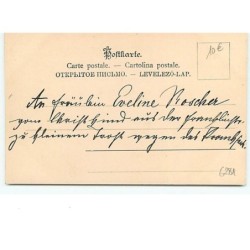 Postkarte.
Carte postale. — Cartolina postale.
ОТКРЫТОЕ ПИСЬМО. — LEVELEZŐ-LAP.
10€
An Fräulein Eveline Roscher
vom Christkind aus der
zu kleinem Trost wegen des